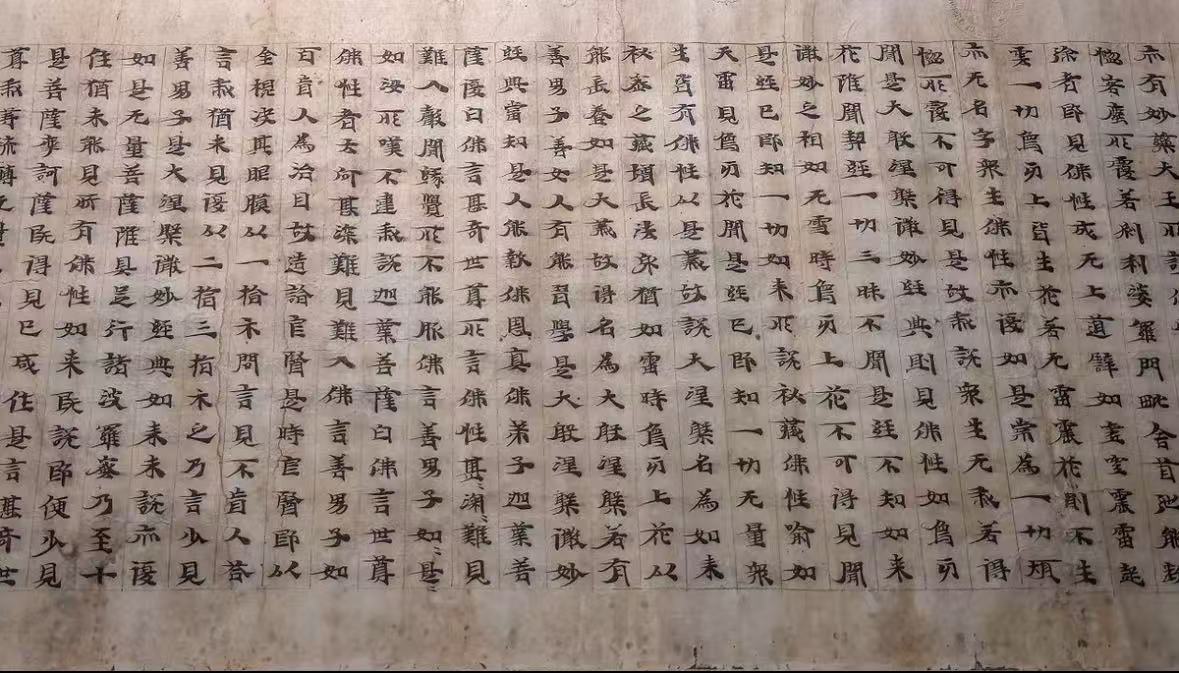 亦有妙藥大王
惱客塵所覆若刹利婆羅門毗舍首陁能斷
除者即見佛性成无上道譬如虛空震雷起
雲一切象牙上皆生花若无雷震花則不生
亦无名字衆生佛性亦復如是常為一切煩
惱所覆不可得見是故我說衆生无我若得
聞是大般涅槃微妙經典則見佛性如象牙
花雖聞契經一切三昧不聞是經不知如来
微妙之相如无雷時象牙上花不可得見聞
是經已即知一切如来所說秘藏佛性喻如
天雷見象牙花聞是經已即知一切无量衆
生皆有佛性以是義故說大涅槃名為如来
秘密之藏增長法身猶如雷時象牙上花以
能長養如是大義故得名為大般涅槃若有
善男子善女人有能習學是大般涅槃微妙
經典當知是人能報佛恩真佛弟子迦葉菩
薩復白佛言甚奇世尊所言佛性甚〻深〻難見
難入聲聞緣覺所不能服佛言善男子如〻是〻
如汝所嘆不違我說迦葉菩薩白佛言世尊
佛性者云何甚深難見難入佛言善男子如
百盲人為治目故造詣良醫是時良醫即以
金錍決其眼膜以一指示問言見不盲人答
言我猶未見復以二指三指示之乃言少見
善男子是大涅槃微妙經典如来未說亦復
如是无量菩薩雖具足行諸波羅蜜乃至十
住猶未能見所有佛性如来既說即便少見
是菩薩摩訶薩既得見已咸作是言甚奇世
尊我等流轉